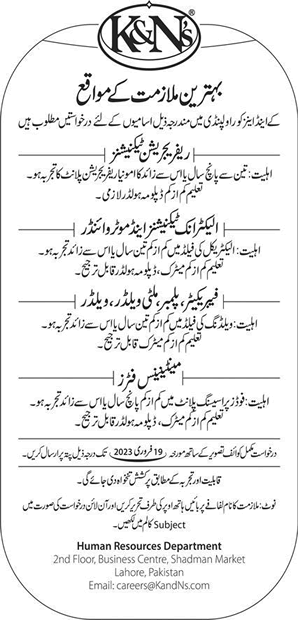 K&N's®
بہترین ملازمت کے مواقع
کے اینڈ اینز کو راولپنڈی میں مندرجہ ذیل اسامیوں کے لئے درخواستیں مطلوب ہیں
ریفریجریشن ٹیکنیشنز
اہلیت: تین سے پانچ سال یا اس سے زائد کا امونیا ریفریجریشن پلانٹ کا تجربہ ہو۔
تعلیم کم از کم ڈپلومہ ہولڈر لازمی۔
الیکٹرانک ٹیکنیشنز اینڈ موٹر وائنڈر
اہلیت: الیکٹریکل کی فیلڈ میں کم از کم تین سال یا اس سے زائد تجربہ ہو۔
تعلیم کم از کم میٹرک، ڈپلومہ ہولڈر قابل ترجیح۔
فیبریکیٹر، پلمبر، ملٹی ویلڈر، ویلڈر
اہلیت: ویلڈنگ کی فیلڈ میں کم از کم تین سال یا اس سے زائد تجربہ ہو۔
تعلیم کم از کم میٹرک قابل ترجیح۔
مینٹیننس فٹرز
اہلیت: فوڈز پراسیسنگ پلانٹ میں کم از کم پانچ سال یا اس سے زائد تجربہ ہو۔
تعلیم کم از کم میٹرک، ڈپلومہ ہولڈر قابل ترجیح۔
درخواست مکمل کوائف تصویر کے ساتھ مورخہ 19 فروری 2023 تک درجہ ذیل پتہ پر ارسال کریں۔
قابلیت اور تجربہ کے مطابق پرکشش تنخواہ دی جائے گی۔
نوٹ: ملازمت کا نام لفافے پر بائیں ہاتھ اوپر کی طرف تحریر کریں اور آن لائن درخواست کی صورت میں
Subject کالم میں لکھیں۔
Human Resources Department
2nd Floor, Business Centre, Shadman Market
Lahore, Pakistan
Email: careers@KandNs.com